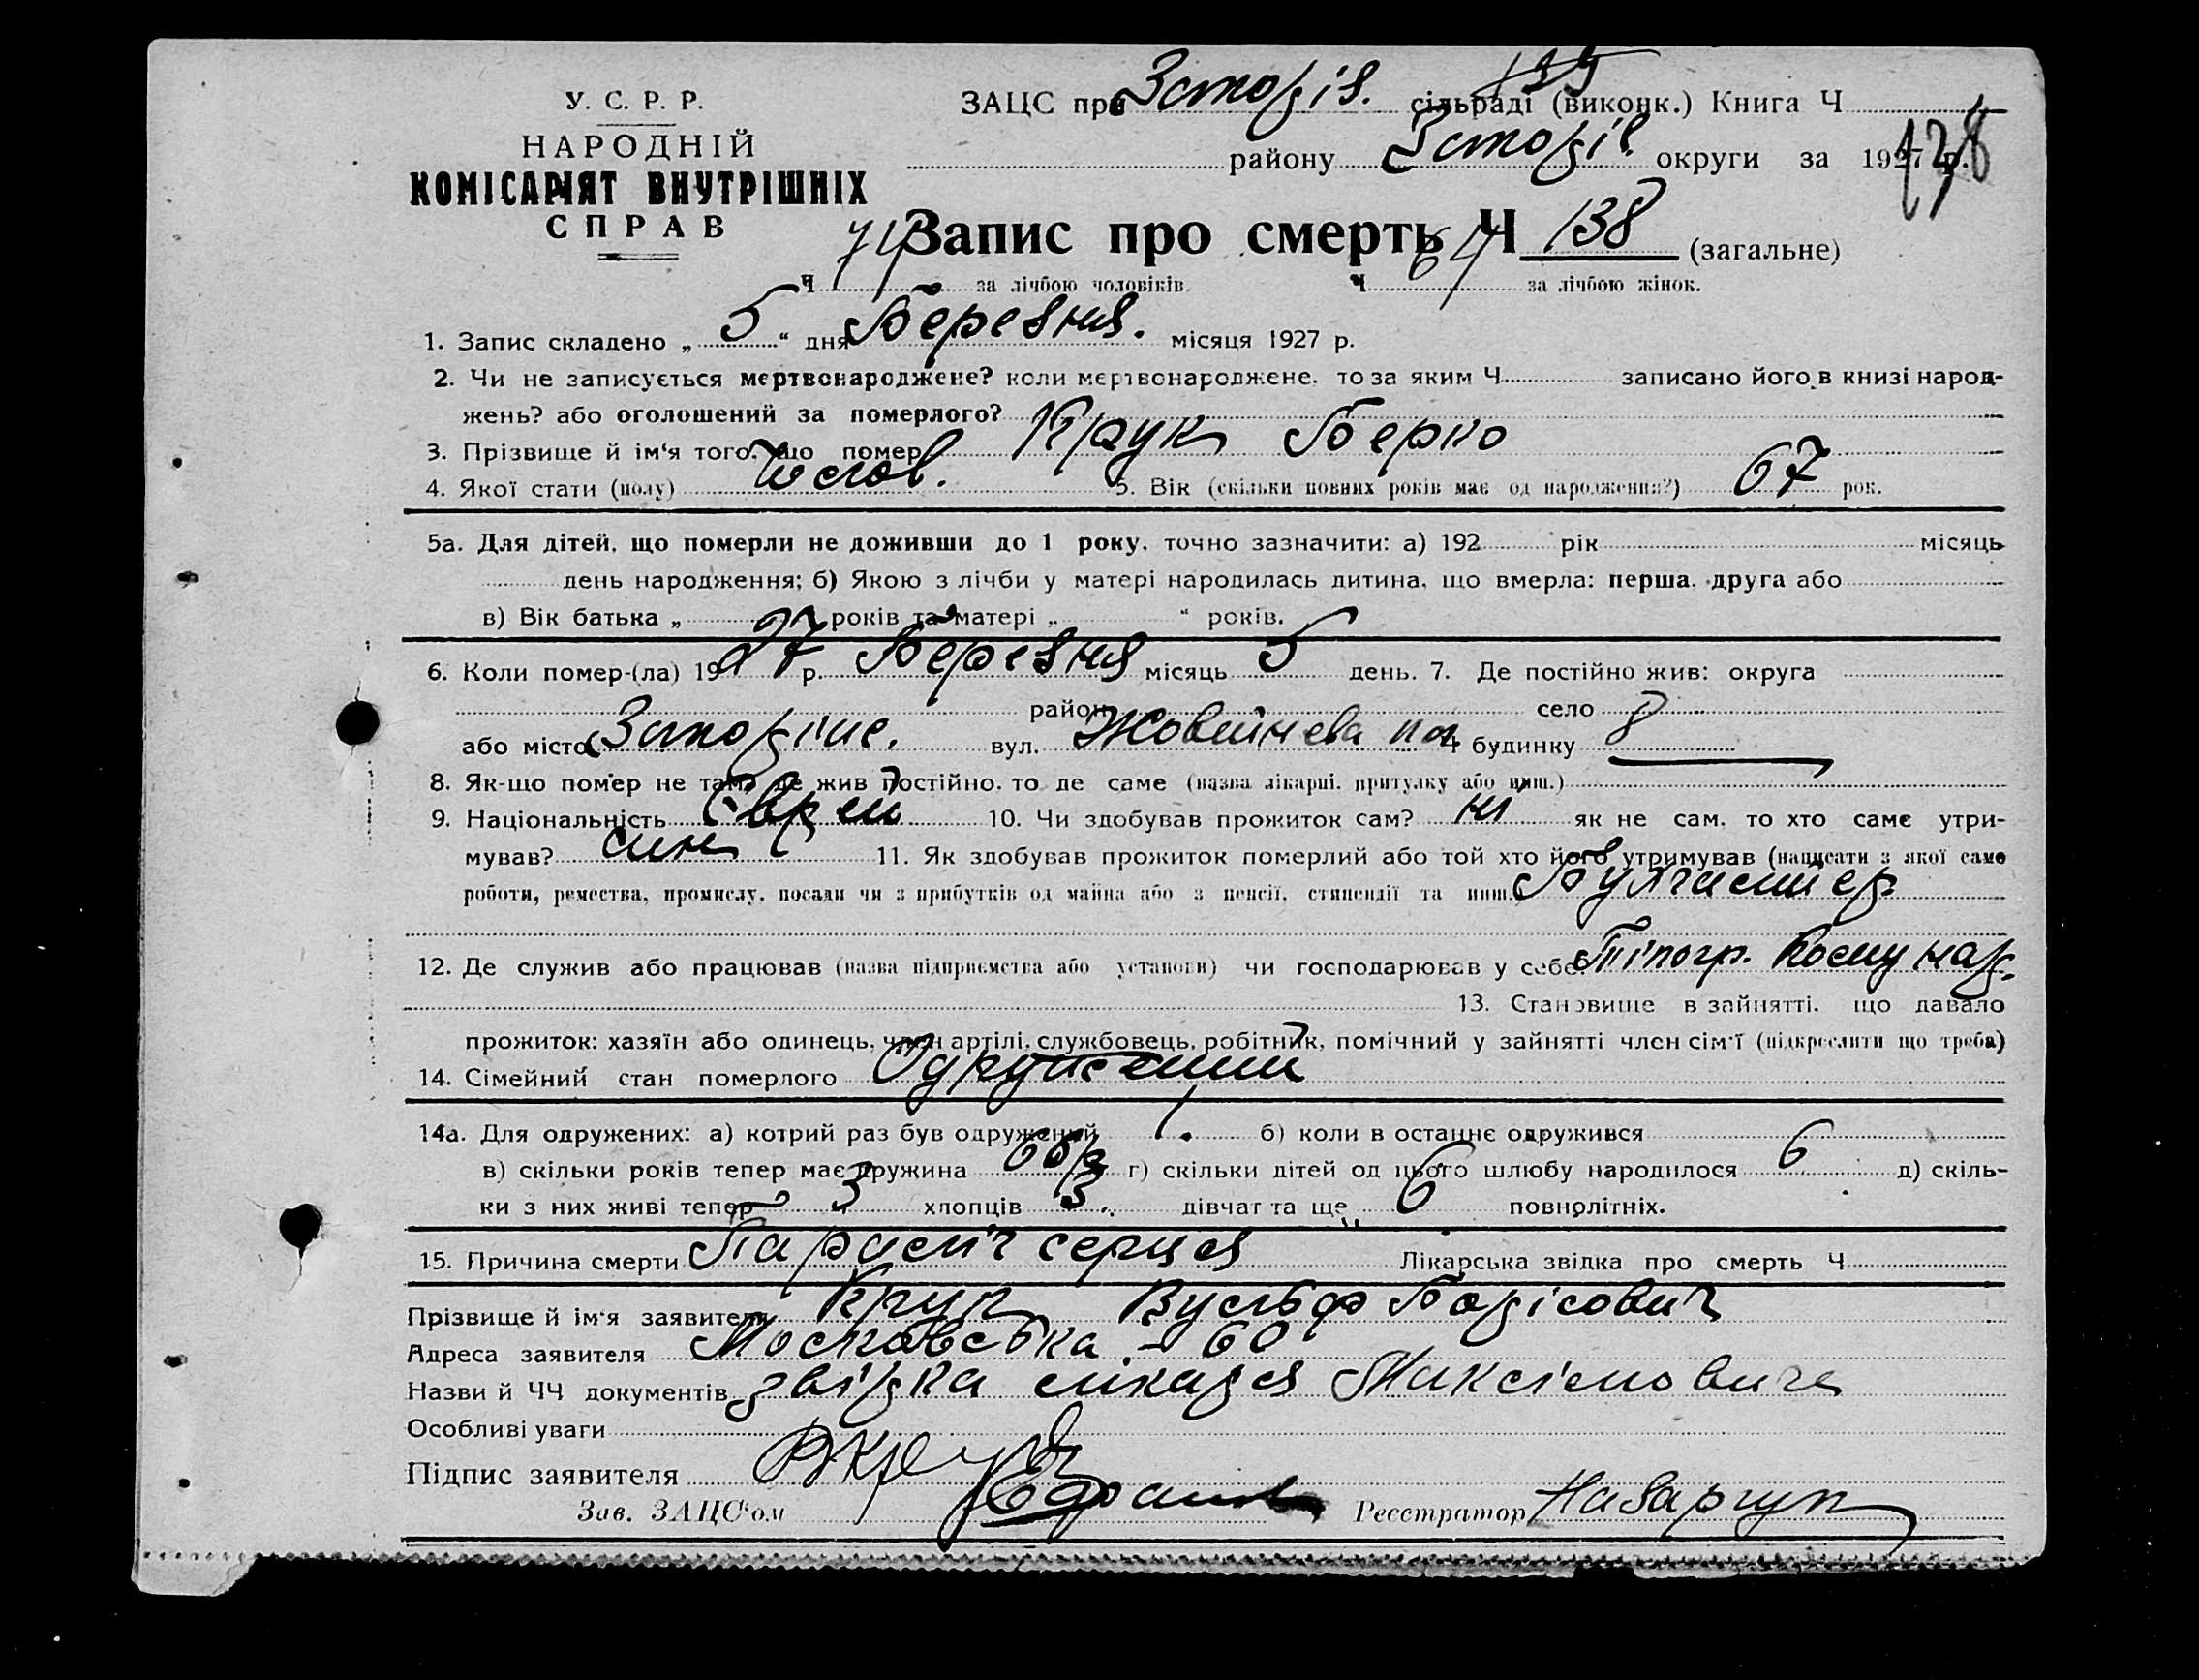 У. С. Р. Р.
НАРОДНІЙ
КОМІСАРІЯТ ВНУТРІШНІХ
СПРАВ
ЗАЦС при Запоріз. сільраді (виконк.) Книга Ч
району Запоріз. округи за 1927 р.
138
Запис про смерть Ч 138 (загальне)
Ч 74 за лічбою чоловіків. Ч 64 за лічбою жінок.
1. Запис складено „ 5 “ дня Березня. місяця 1927 р.
2. Чи не записується мертвонароджене? коли мертвонароджене, то за яким Ч записано його в книзі народ-
жень? або оголошений за померлого?
3. Прізвище й ім‘я того, що помер Крук Берко
4. Якої стати (полу) чолов. 5. Вік (скільки повних років має од народження?) 67 рок.
5а. Для дітей, що померли не доживши до 1 року, точно зазначити: а) 192 рік місяць
день народження; б) Якою з лічби у матері народилась дитина, що вмерла: перша, друга або
в) Вік батька „ років та матері „ “ років.
6. Коли помер-(ла) 1927 р. Березня місяць 5 день. 7. Де постійно жив: округа
район село
або місто Запоріжє. вул. Жовтнева пл Ч будинку 8
8. Як-що помер не там, де жив постійно, то де саме (назва лікарні, притулку або инш.)
9. Національність Єврей 10. Чи здобував прожиток сам? ні як не сам, то хто саме утри-
мував? син 11. Як здобував прожиток померлий або той хто його утримував (написати з якої саме
роботи, ремества, промислу, посади чи з прибутків од майна або з пенсії, стипендії та инш.) Бухгалтер
12. Де служив або працював (назва підприємства або установи) чи господарював у себе? Тіпогр. Комунар.
13. Становище в зайнятті, що давало
прожиток: хазяїн або одинець, член артілі, службовець, робітник, помічний у зайнятті член сім‘ї (підкреслити що треба)
14. Сімейний стан померлого Одружений
14а. Для одружених: а) котрий раз був одружений 1. б) коли в останнє одружився
в) скільки років тепер має дружина г) скільки дітей од цього шлюбу народилося 6 д) скіль-
ки з них живі тепер 3 хлопців 3 дівчат та ще 6 повнолітніх.
15. Причина смерти Параліч серця Лікарська звідка про смерть Ч
Прізвище й ім‘я заявителя Крук Вульф Борісович
Адреса заявителя Московська - 60
Назви й ЧЧ документів звідка лікаря Максімовича
Особливі уваги
Підпис заявителя ВКрук
Зав. ЗАЦС‘ом Реєстратор